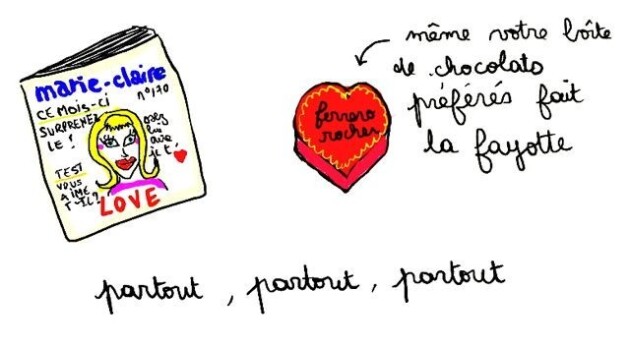 marie-claire
n°170
CE MOIS-CI
SURPRENEZ
LE !
TEST
VOUS
AIME
T-IL?
LOVE
ferrero
rocher
même votre boîte
de chocolats
préférés fait
la fayotte
partout, partout, partout